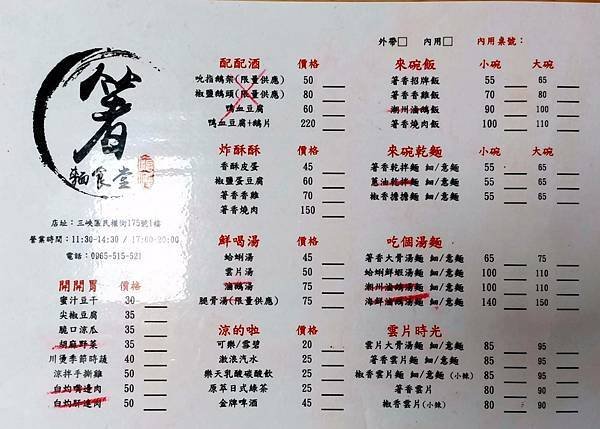 外帶□ 內用□ 內用桌號：
箸
麵食堂
店址：三峽區民權街175號1樓
營業時間：11:30-14:30 / 17:00-20:00
電話：0965-515-521
開開胃 價格
蜜汁豆干 30
尖椒豆腐 35
脆口涼瓜 35
胡麻野菜 35
川燙季節時蔬 40
涼拌手撕雞 50
白灼嘴邊肉 50
白灼肝連肉 50
配配酒 價格
吮指鵝架(限量供應) 50
椒鹽鵝頭(限量供應) 80
鴨血豆腐 60
鴨血豆腐+鵝片 220
炸酥酥 價格
香酥皮蛋 45
椒鹽蛋豆腐 60
箸香香雞 70
箸香燒肉 150
鮮喝湯 價格
蛤蜊湯 45
雲片湯 50
滷鵝湯 75
腿骨湯(限量供應) 75
涼的啦 價格
可樂/雪碧 25
激浪汽水 25
樂天乳酸碳酸飲 25
原萃日式綠茶 25
金牌啤酒 45
來碗飯 小碗 大碗
箸香招牌飯 55 65
箸香香雞飯 70 80
潮州滷鵝飯 90 100
箸香燒肉飯 100 110
來碗乾麵 小碗 大碗
箸香乾拌麵 細/意麵 55 65
蔥油乾拌麵 細/意麵 55 65
椒香擔擔麵 細/意麵 55 65
吃個湯麵 小碗 大碗
箸香大骨湯麵 細/意麵 65 75
蛤蜊鮮蝦湯麵 細/意麵 100 110
潮州滷鵝湯麵 細/意麵 100 110
海鮮滷鵝湯麵 細/意麵 140 150
雲片時光 小碗 大碗
雲片大骨湯麵 細/意麵 85 95
箸香雲片麵 細/意麵 85 95
椒香雲片麵 細/意麵(小辣) 85 95
箸香雲片 80 90
椒香雲片(小辣) 80 90